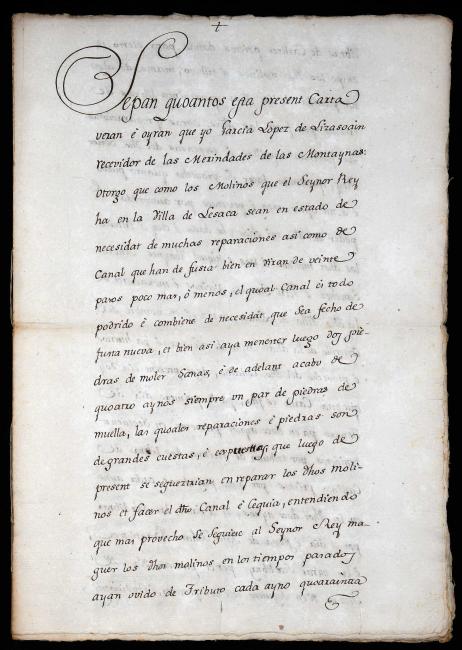 +
Sepan quoantos esta present Carta
veran é oyran que yo Garcia Lopez de Lizasoain
recevidor de las Merindades de las Montaynas:
otorgo que como los Molinos que el Seynor Rey
ha en la Villa de Lesaca sean en estado de
necesidat de muchas reparaciones asi como de
Canal que han de fusta bien en vitan de veinte
pasos poco mas, ó menos, el quoal Canal es todo
podrido é combiene de necesidat, que sea fecho de
fusta nueva, et bien asi aya menester luego dos pie-
dras de moler sanas, é de adelant acabo de
quoatro aynos siempre un par de piedras de
muella, las quoales reparaciones é piedras son
de grandes cuestas, é que luego de
present se seguezrian en reparar los dhos moli-
nos et facer el dho Canal é Cequia, entendiendo
que mas provecho se seguiese al Seynor Rey ma-
guer los dhos molinos en los tiempos pasados
ayan ovido de Tributo cada ayno quoarainta